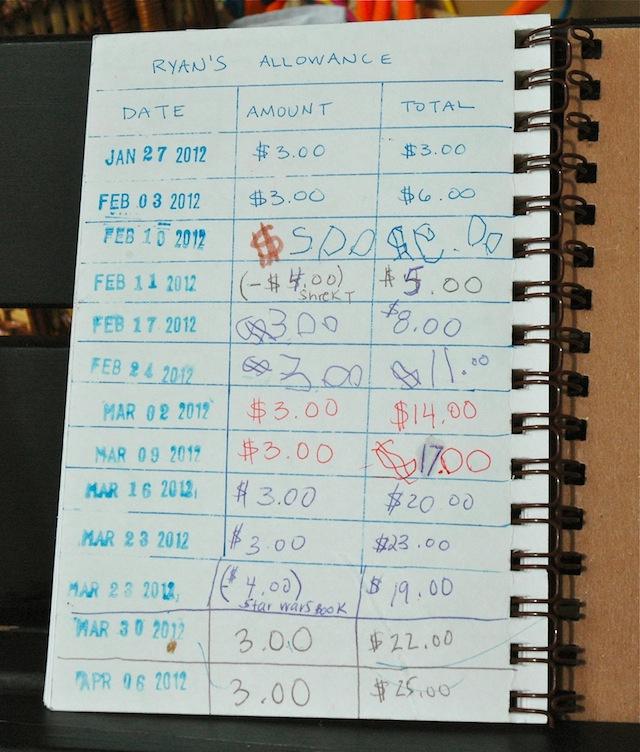 RYAN'S ALLOWANCE
DATE AMOUNT TOTAL
JAN 27 2012 $3.00 $3.00
FEB 03 2012 $3.00 $6.00
FEB 10 2012 $
FEB 11 2012 (-$4.00) $5.00
Shrek T
FEB 17 2012 $300 $8.00
FEB 24 2012 $3.00 $11.00
MAR 02 2012 $3.00 $14.00
MAR 09 2012 $3.00 $17.00
MAR 16 2012 $3.00 $20.00
MAR 23 2012 $3.00 $23.00
MAR 23 2012 ($4.00) $19.00
Star Wars Book
MAR 30 2012 3.00 $22.00
APR 06 2012 3.00 $25.00